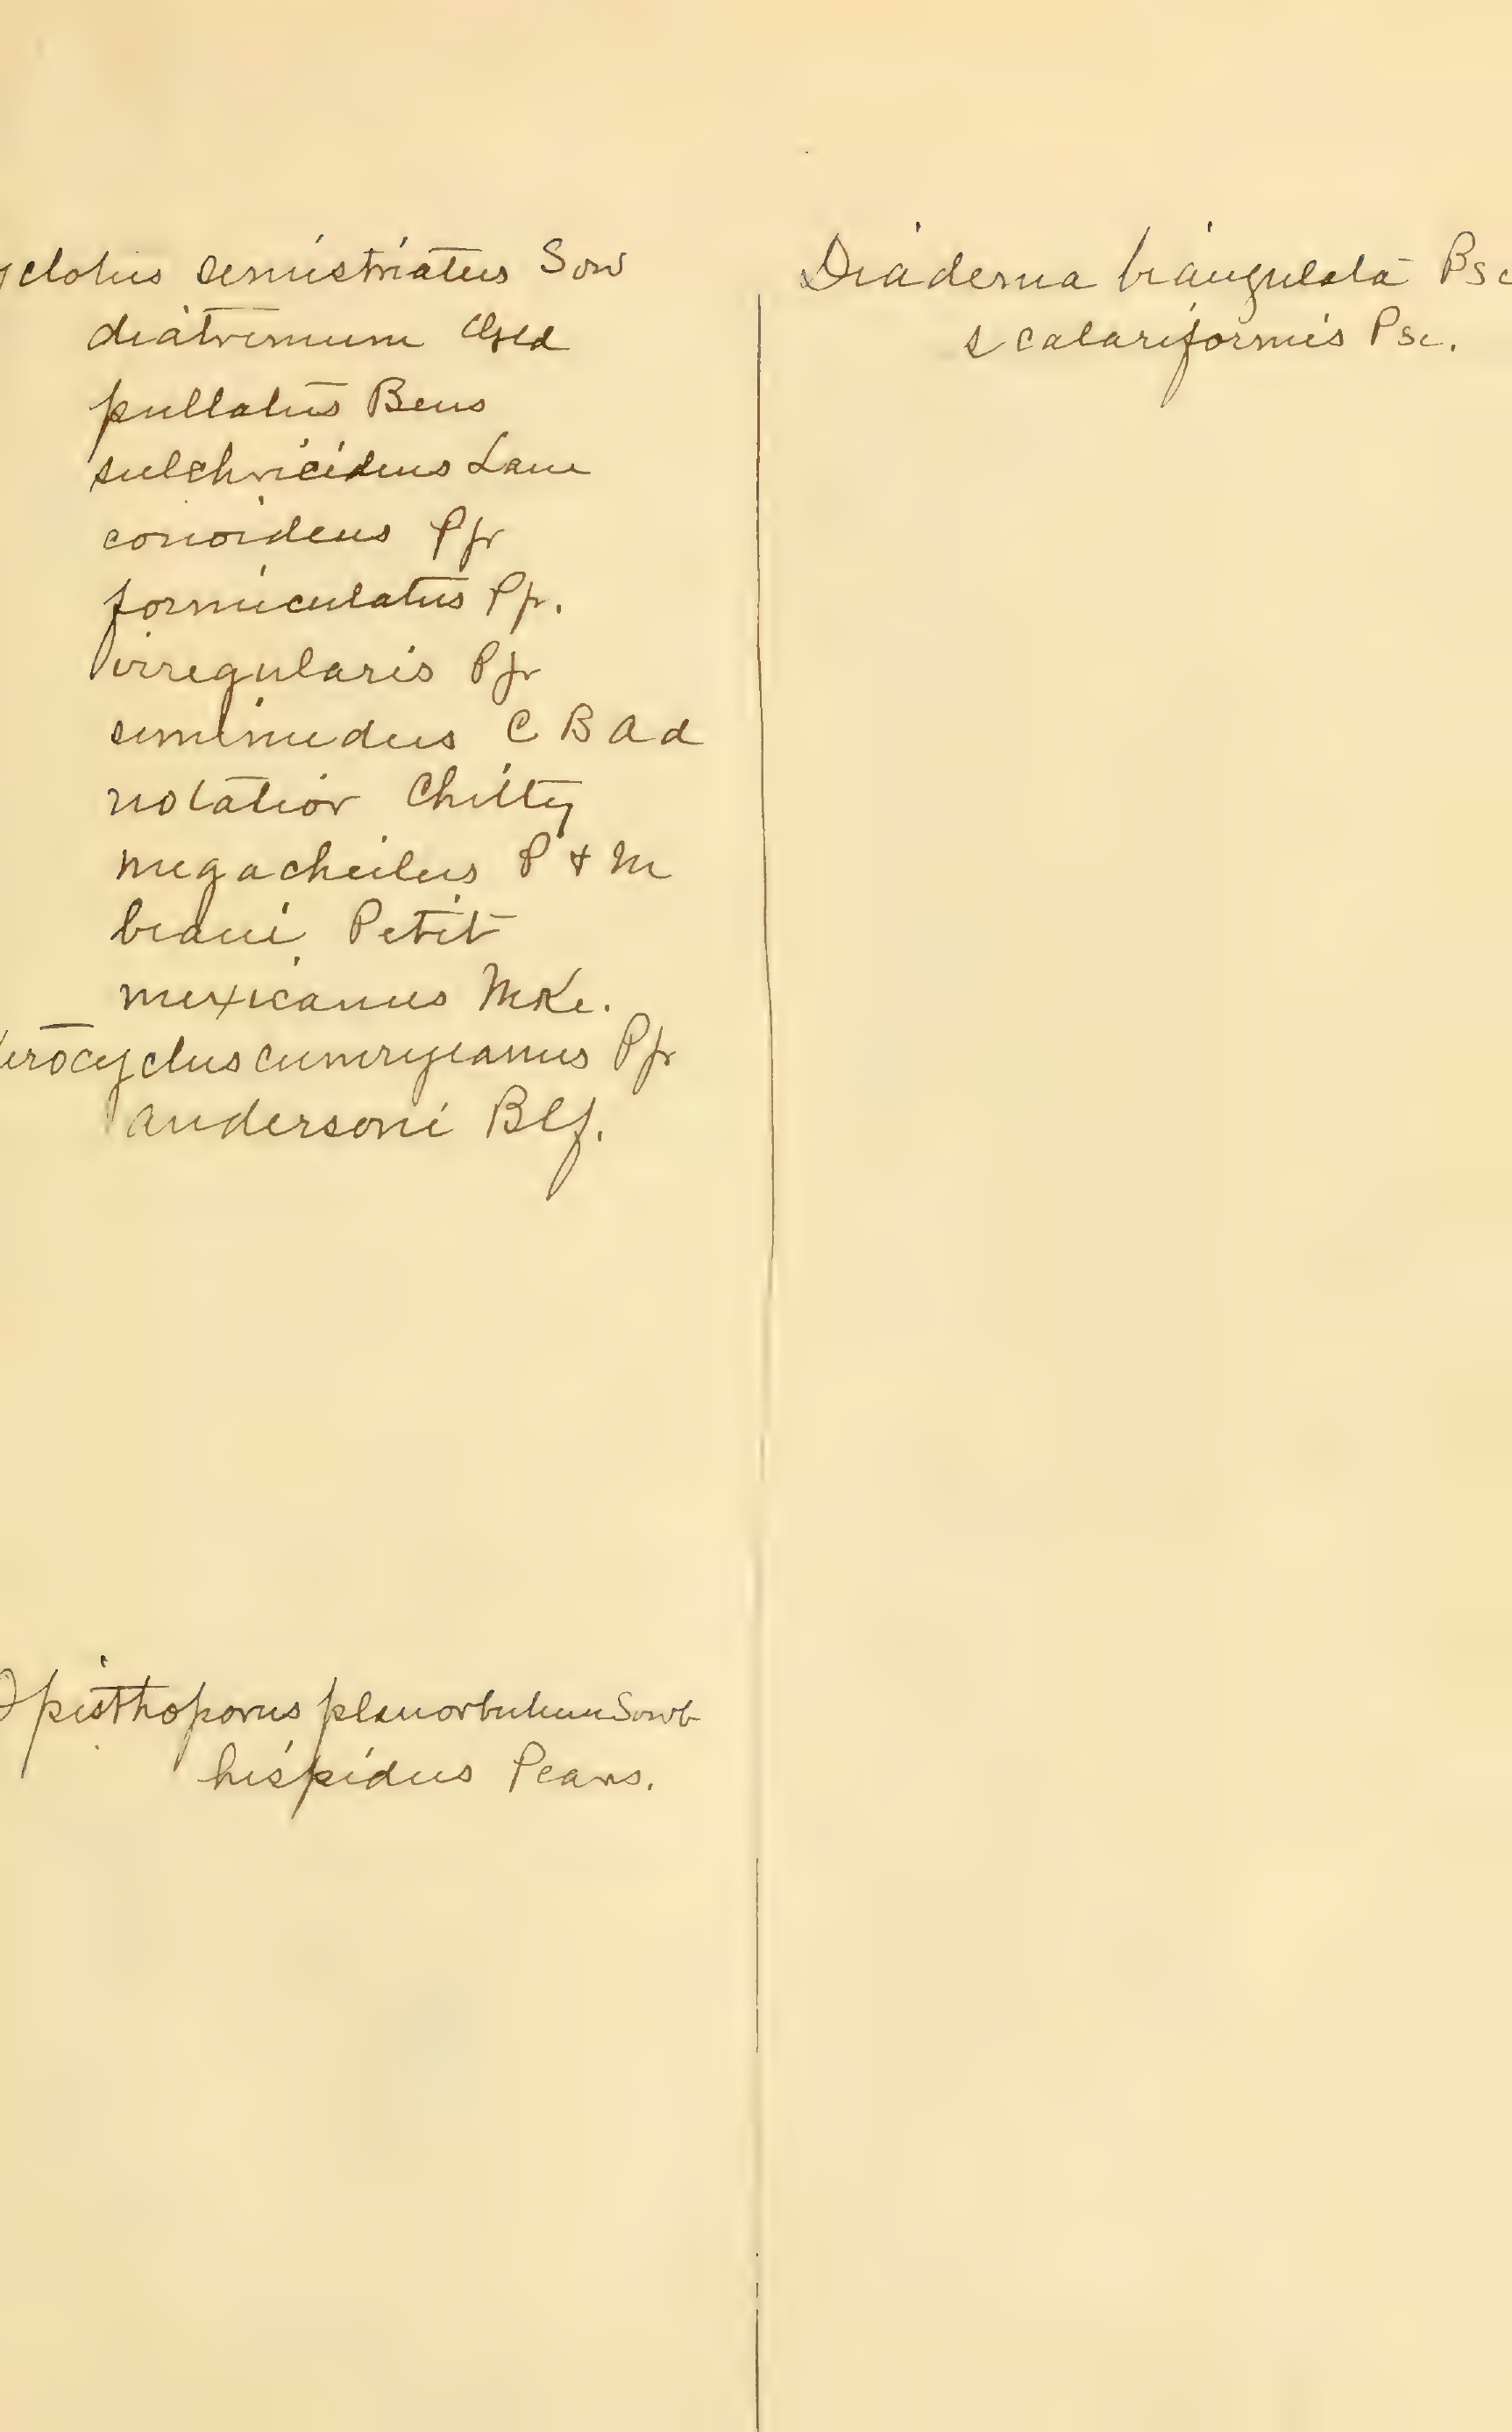 yclotus semistriatus Sow
diatremum
pullatus Bens
conoideus Pfr
formiculatus Pfr.
irregularis Pfr
seminudus C B Ad
notatior Chitty
megacheilus P & M
beani Petit
mexicanus Mke.
erocyclus cumeryeanus Pfr
andersoni Blf.
Opisthoporus planorbulum Sowb
hispidus Pears.
Diadema biangulata Psc
scalariformis Psc.